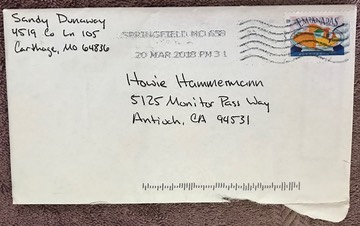 Sandy Dunaway
4519 Co Ln 105
Carthage, MO 64836
SPRINGFIELD MO 658
20 MAR 2018 PM 3 L
EMPANADAS
Howie Hammermann
5125 Monitor Pass Way
Antioch, CA 94531